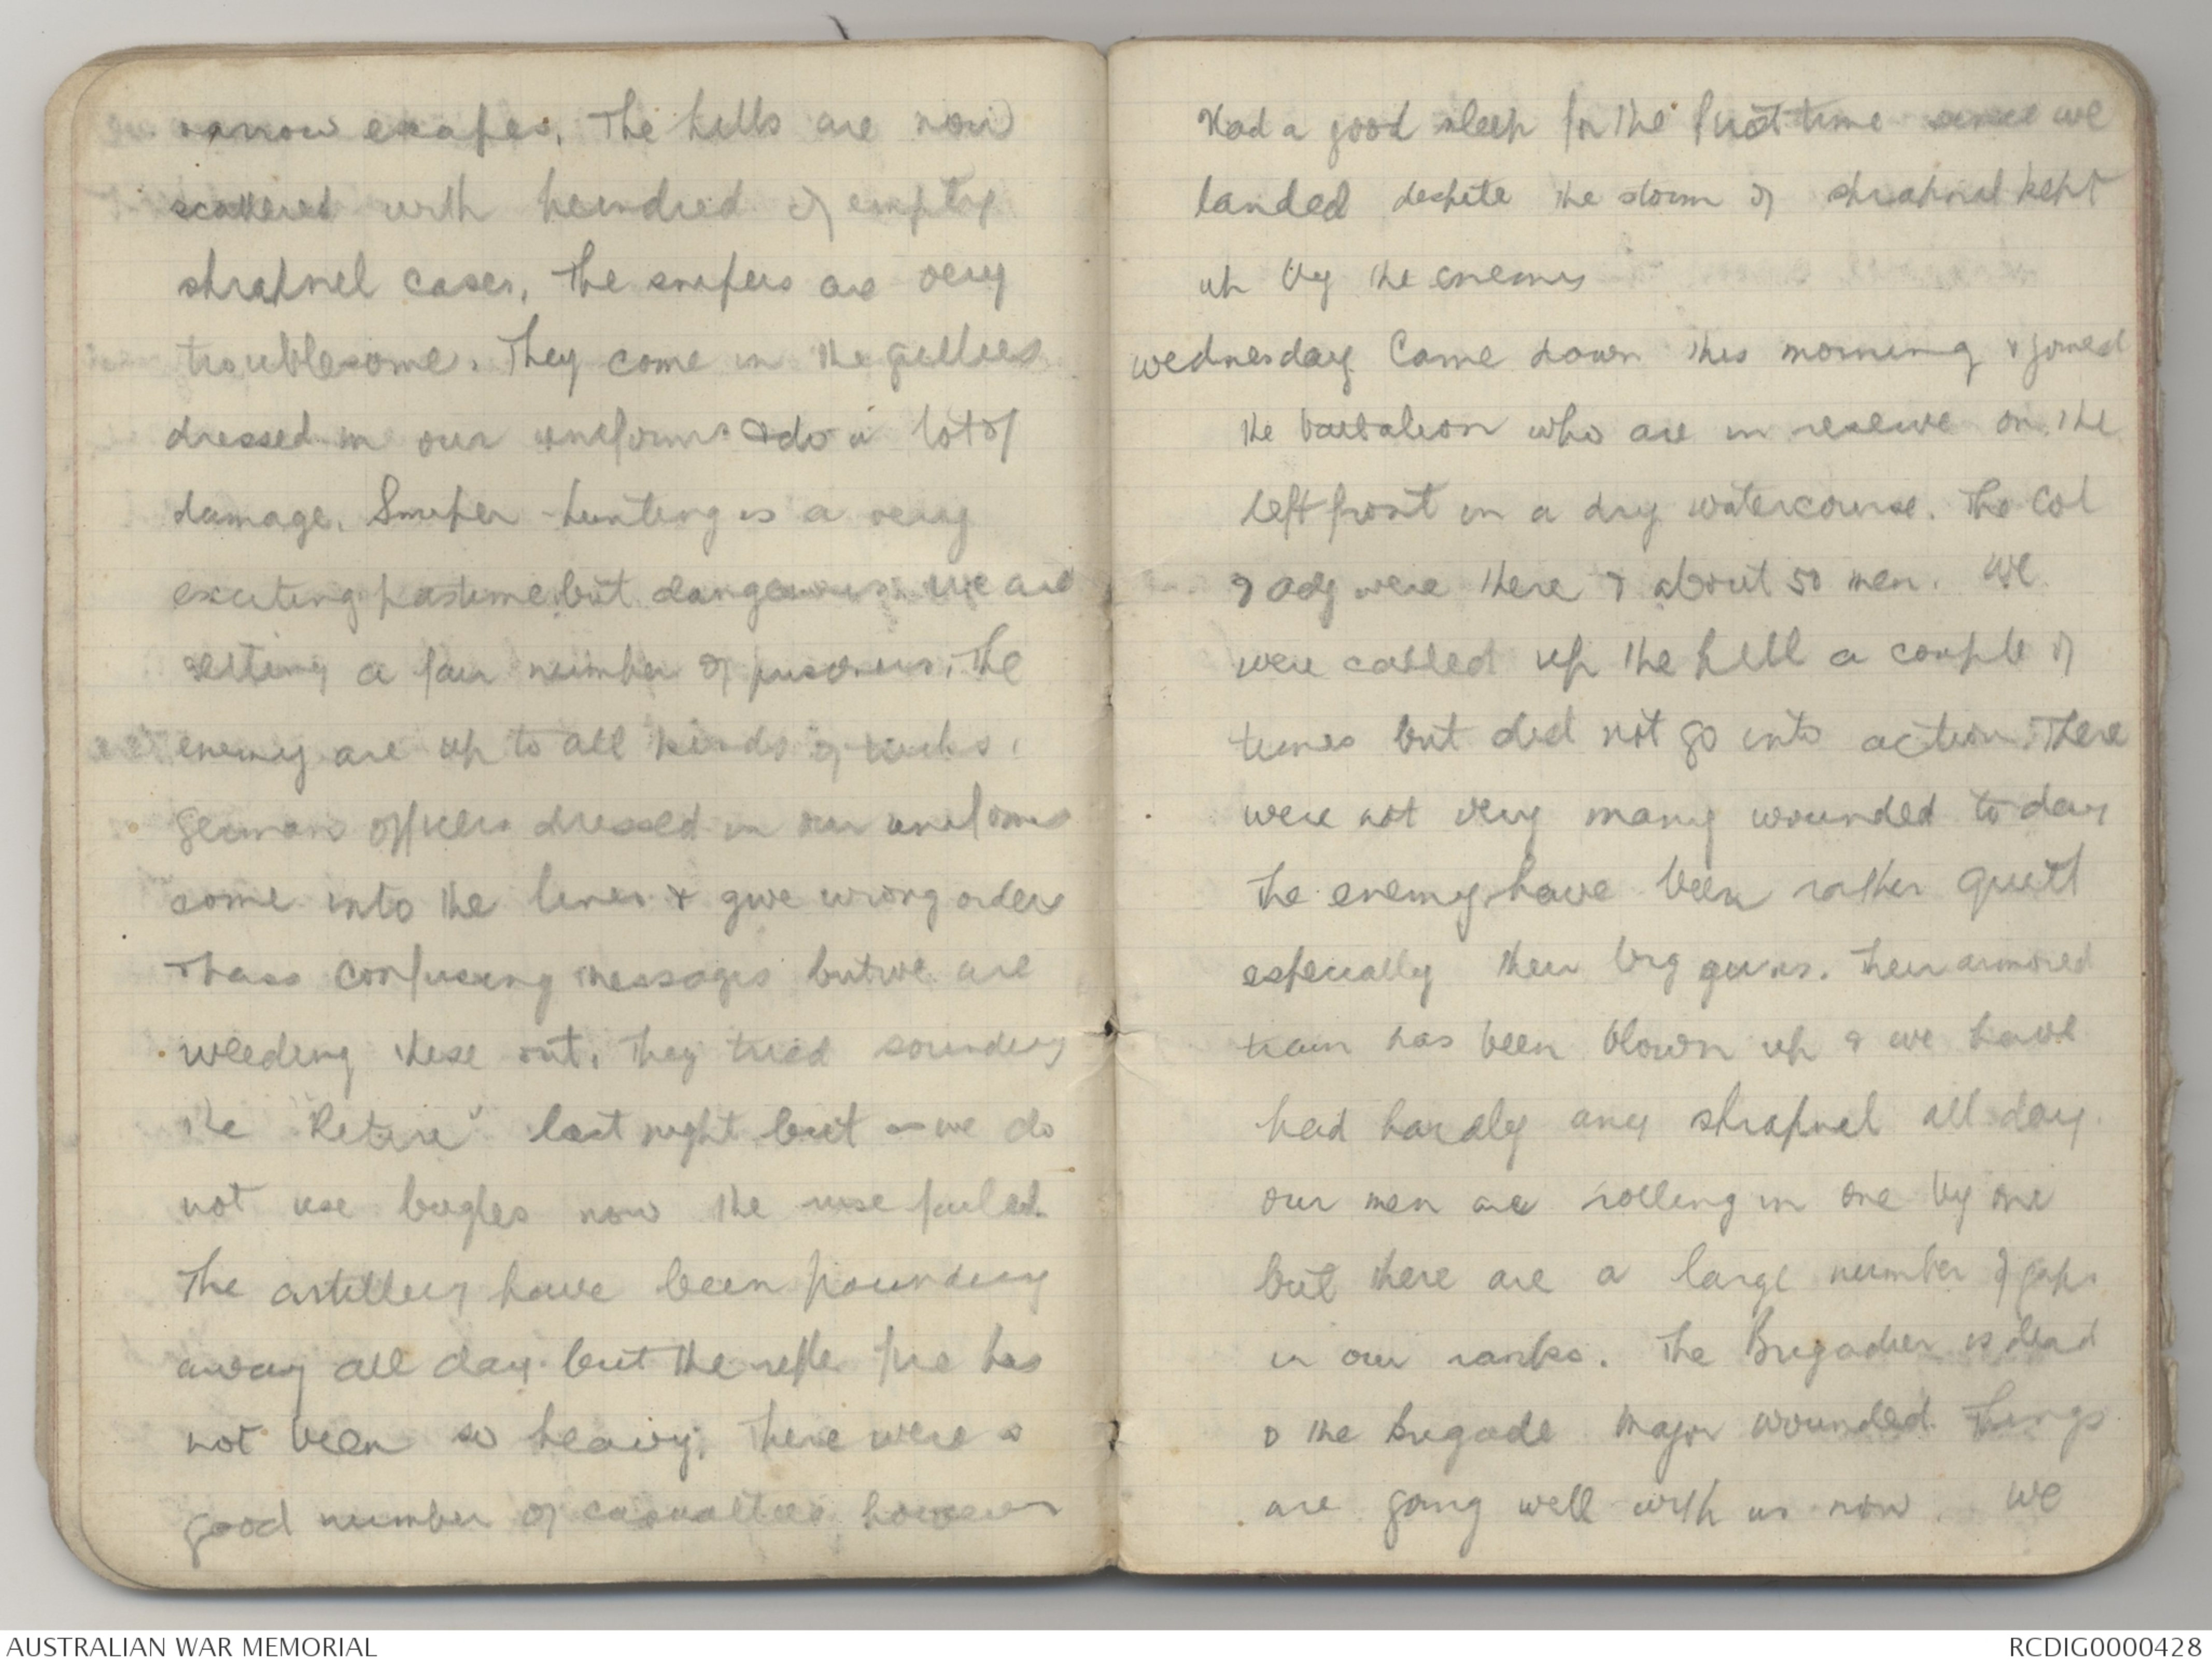 narrow escapes. The hills are now
scattered with hundred of empty
shrapnel cases. The snipers are very
troublesome. They come in the gullies
dressed in our uniforms & do a lot of
damage. Sniper hunting is a very
exciting pastime but dangerous. We are
getting a fair number of prisoners. The
enemy are up to all kinds of tricks.
German officers dressed in our uniforms
come into the lines & give wrong orders
& pass confusing messages but we are
weeding these out. They tried sounding
the "Retire" last night but as we do
not use bugles now the ruse failed.
The artillery have been pounding
away all day but the rifle fire has
not been so heavy. There were a
good number of casualties however
Had a good sleep for the first time since we
landed despite the storm of shrapnel kept
up by the enemy
Wednesday Came down this morning & joined
the battalion who are in reserve on the
left front in a dry watercourse. The Col
& Adj were there & about 50 men. We
were called up the hill a couple of
times but did not go into action. There
were not very many wounded to day
The enemy have been rather quiet
especially their big guns. Their armored
train has been blown up & we have
had hardly any shrapnel all day.
Our men are rolling in one by one
but there are a large number of gaps
in our ranks. The Brigadier is dead
& the Brigade Major wounded. Things
are going well with us now. We
AUSTRALIAN WAR MEMORIAL
RCDIG0000428